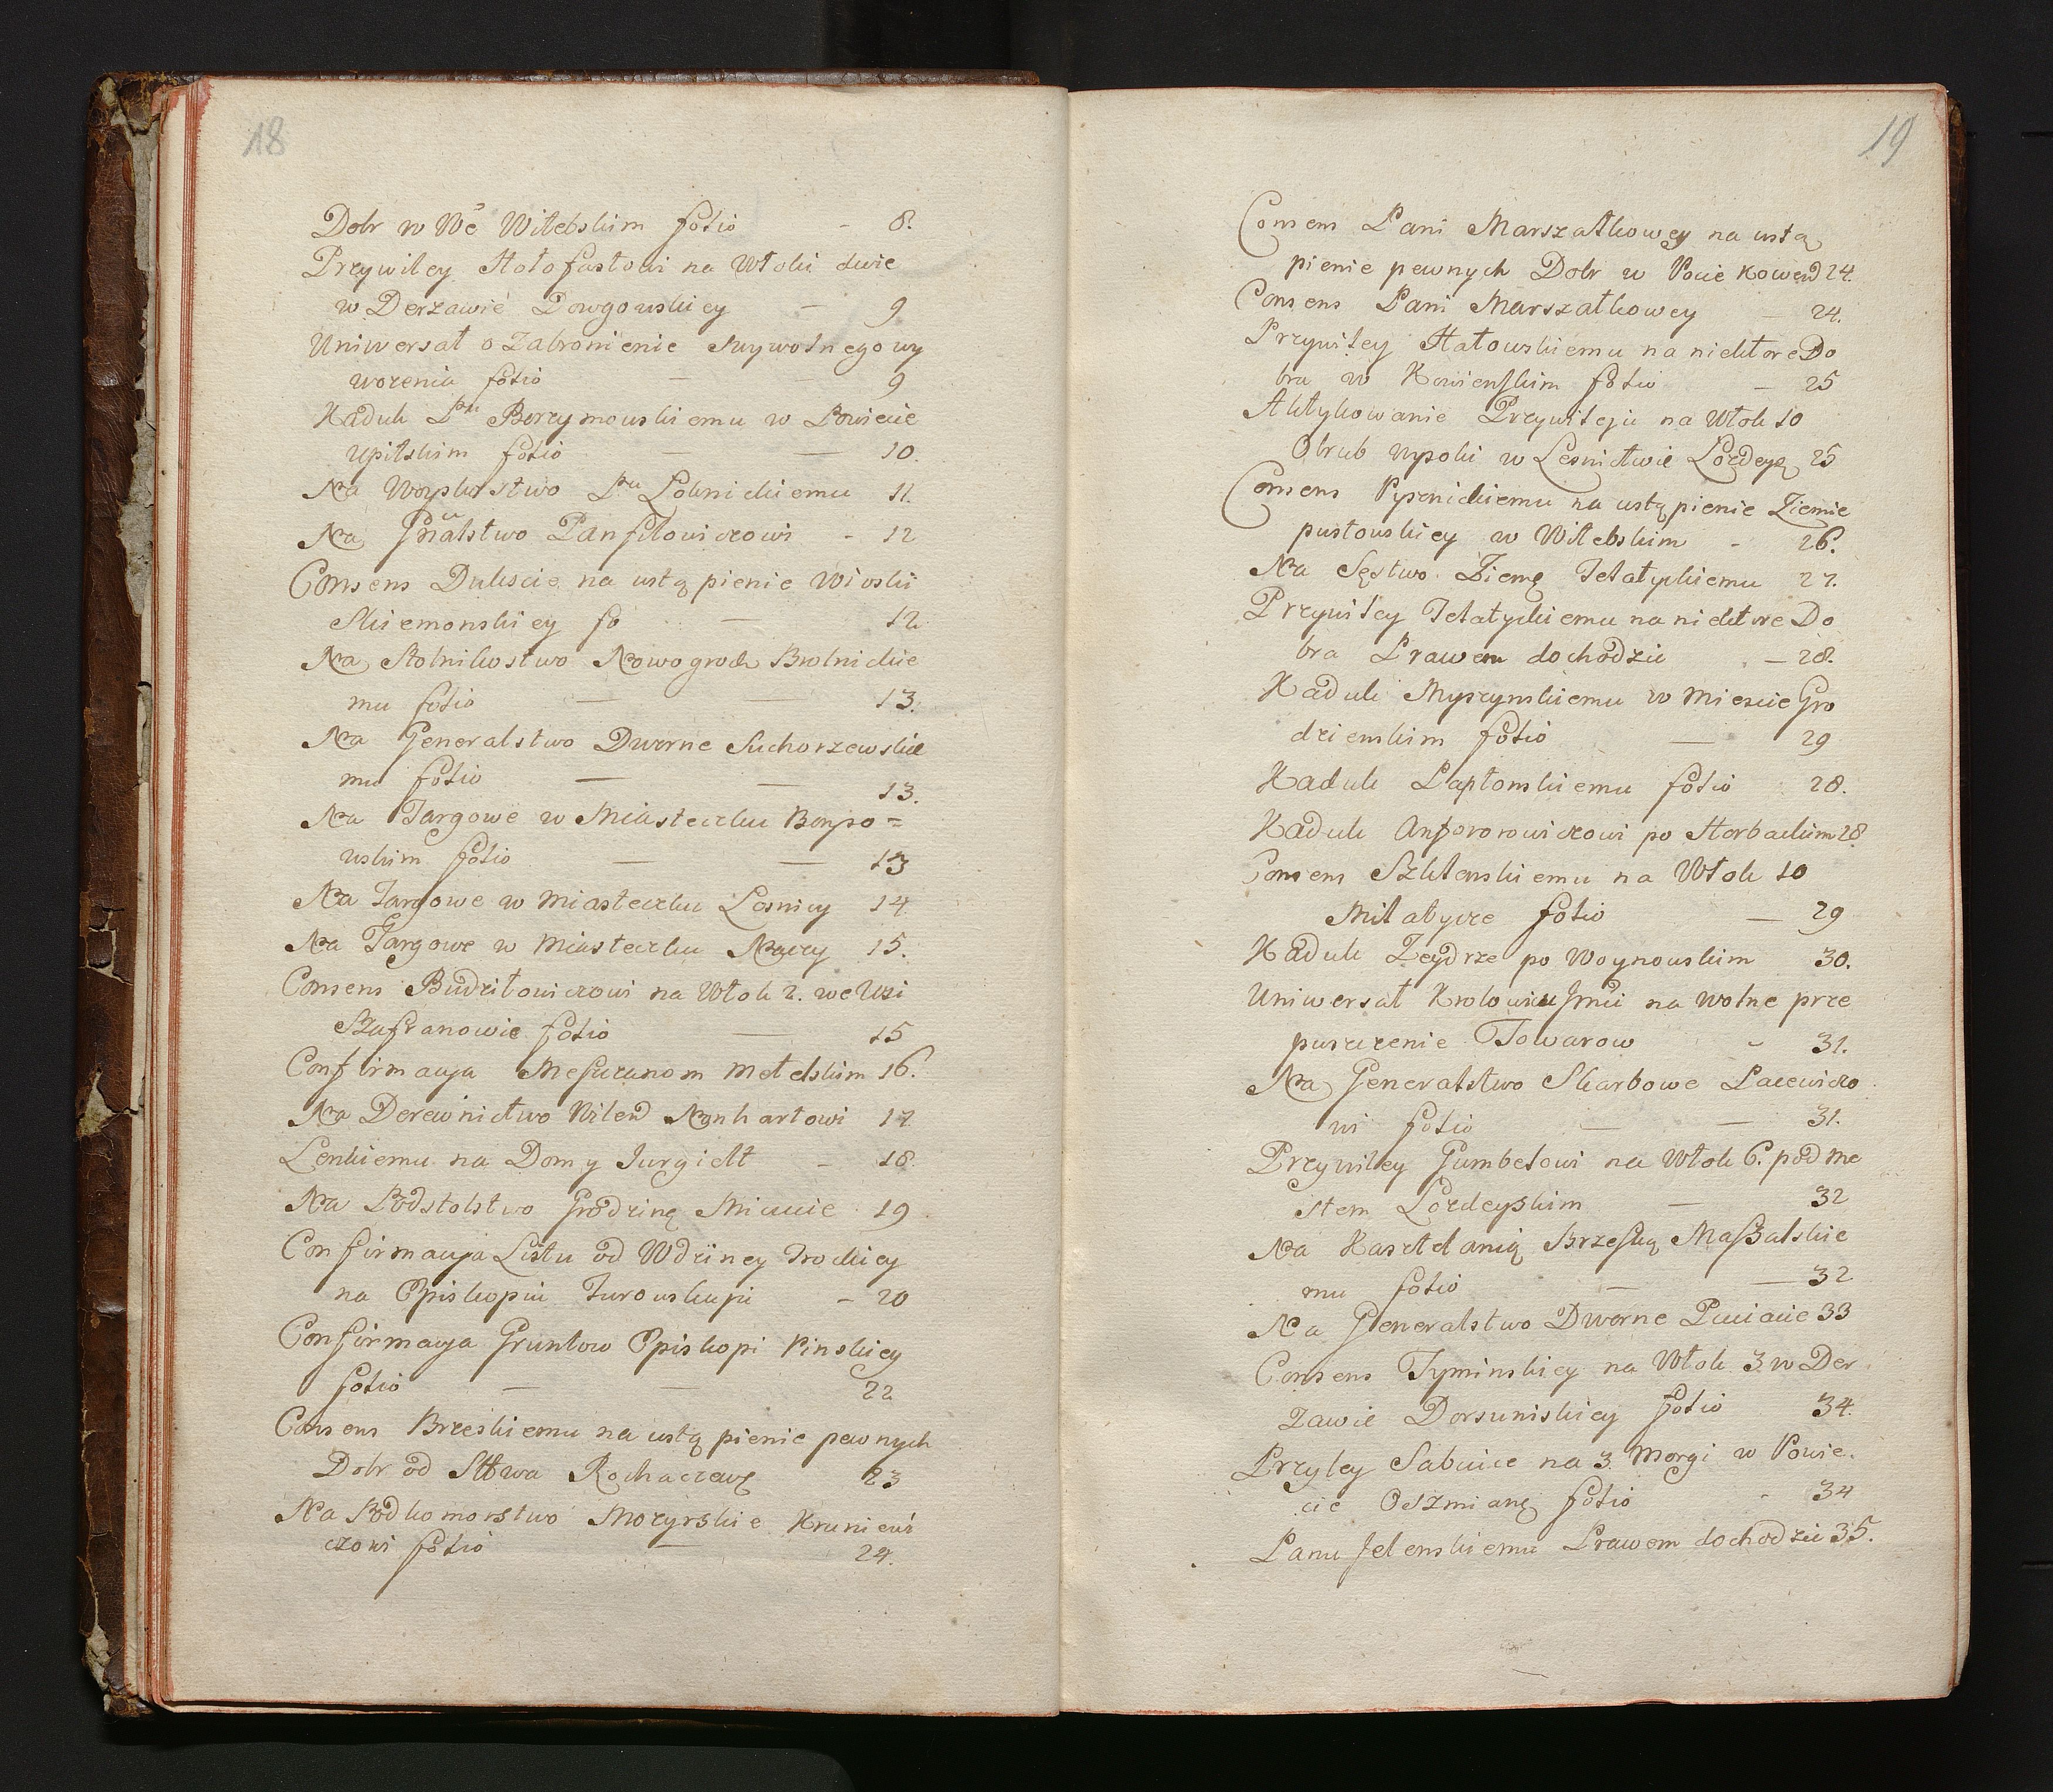 18
Dobr w Wẽ Witebskim folio - 8.
Przywiley Hołofastowi na Włoki dwie
w Derzawie Dowgowskiey — 9
Uniwersał o Zabronienie Swywolnego wy
worenia folio — 9
Kaduk Pnu Borzymowskiemu w Powiecie
Upitskim folio — — 10.
Na Woyskostwo Pnu Łobnickiemu 11.
Na Gñałstwo Panfiłowiczowi - 12
Consens Dulescie na ustąpienie Wioski
Skiemonskiey fo — 12
Na Stolnikostwo Nowogrodz Brolnickie
mu folio — — 13.
Na Generalstwo Dworne Suchorzewskie
mu folio — — 13.
Na Targowe w Miasteczku Bonpo=
wskim folio — — 13
Na Targowe w Miasteczku Lesnicy 14
Na Targowe w Miasteczku Naczy 15.
Consens Budziłowiczowi na Włok 2. we Wsi
Szafranowie folio — 15
Confirmacya Mesczanom Metelskim 16.
Na Derewnictwo Wilend Manhartowi 17
Lenkiemu na Domy Jurgielt - 18
Na Podstolstwo Grodzinę Micucie 19
Confirmacya Listu od Wdziney Trockiey
na Episkopiu Turowskyiu - 20
Confirmacya Gruntow Episkopi Pinskiey
folio — — 22
Consens Brzeskiemu na ustąpienie pewnych
Dobr od Sttwa Rochaczewę 23
Na Podkomorstwo Mozyrskie Kruniewi
czowi folio — 24.
19
Consens Pani Marszałkowey na ustą
pienie pewnych Dobr w Powie Kowend 24.
Consens Pani Marszałkowey — 24.
Przywiley Hałowskiemu na niektore Do
bra w Kowienskim folio — 25
Aktykowanie Przywileju na Włok 10
Obrub wysoki w Lesnictwie Łozdeyę 25
Consens Pysznickiemu na ustąpienie Ziemie
pustowskiey w Witebskim - 26.
Na Sęstwo Ziemę Telatyckiemu 27.
Przywiley Telatyckiemu na niektore Do
bra Prawem dochodzic — 28.
Kaduk Myszynskiemu w Miescie Gro
dzienskim folio — 29
Kaduk Łaptonskiemu folio 28.
Kaduk Anforowiczowi po Horbackim 28
Consens Szklenskiemu na Włok 10
Miłatycze folio — 29
Kaduk Zeydrze po Woynowskim 30.
Uniwersał Krolowicu Jmci na wolne prze
puszczenie Towarow - 31.
Na Generalstwo Skarbowe Pacewiczo
wi folio — — 31.
Przywiley Gumbetowi na Włok 6. pod Me
stem Łozdeyskim — 32
Na Kasztelanią Brzeską Maszalskie
mu folio — — 32
Na Generalstwo Dworne Pucicie 33
Consens Tyminskiey na Włok 3 w Der
zawie Dorsuniskiey folio 34.
Przyley Sabucie na 3 Morgi w Powie.
cie Oszmianę folio - 34
Panu Jelenskiemu Prawem dochodzic 35.